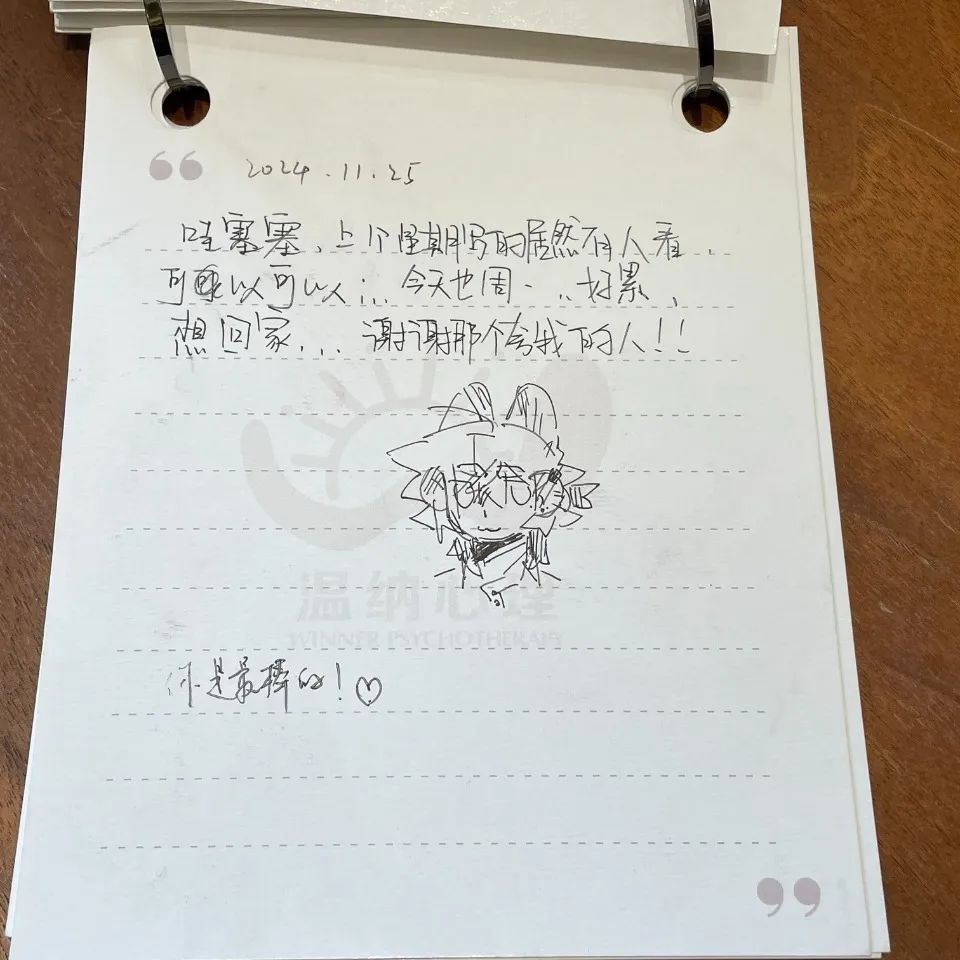 2024.11.25
哇塞塞，上个星期写的居然有人看，
可以可以... 今天也周一..好累，
想回家... 谢谢那个夸我的人！！
温纳心理
WINNER PSYCHOTHERAPY
你是最棒的！♡